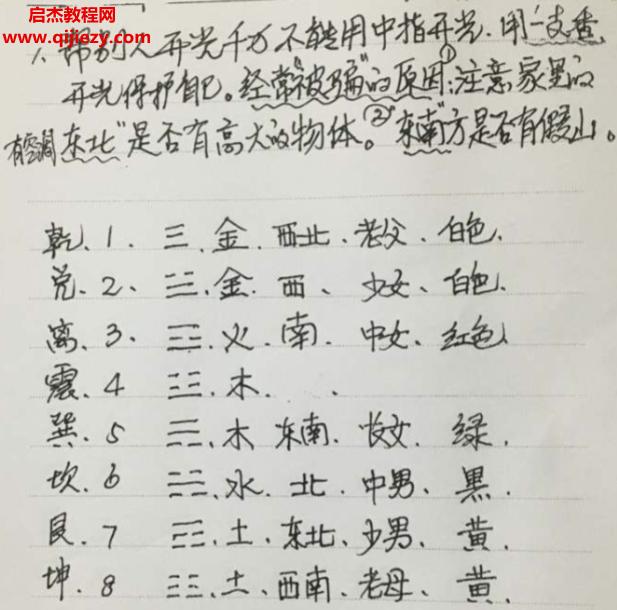 启杰教程网
www.qikezy.com
1、帮别人开光千万不能用中指开光.用一支香
开光保护自己。经常"被骗"的原因:①注意家里的
有空调 东北"是否有高大的物体。②"东南"方是否有假山。
乾、1、☰、金、西北、老父、白色.
兑、2、☱、金、西、少女、白色.
离、3、☲、火、南、中女、红色.
震、4 ☳、木、、
巽、5 ☴、木、东南、长女、绿.
坎、6 ☵、水、北、中男、黑.
艮、7 ☶、土、东北、少男、黄.
坤、8 ☷、土、西南、老母、黄.